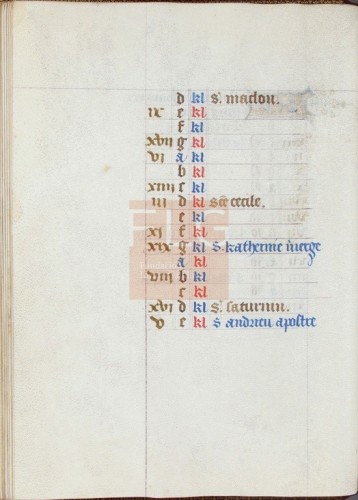 d kl s. maclou.
ix e kl
f kl
xvii g kl
vi a kl
b kl
xiiii c kl
iii d kl sce cecile.
e kl
xi f kl
xix g kl S. katherine vierge
a kl
viii b kl
c kl
xvi d kl s. saturnin.
v e kl S andrieu apostre